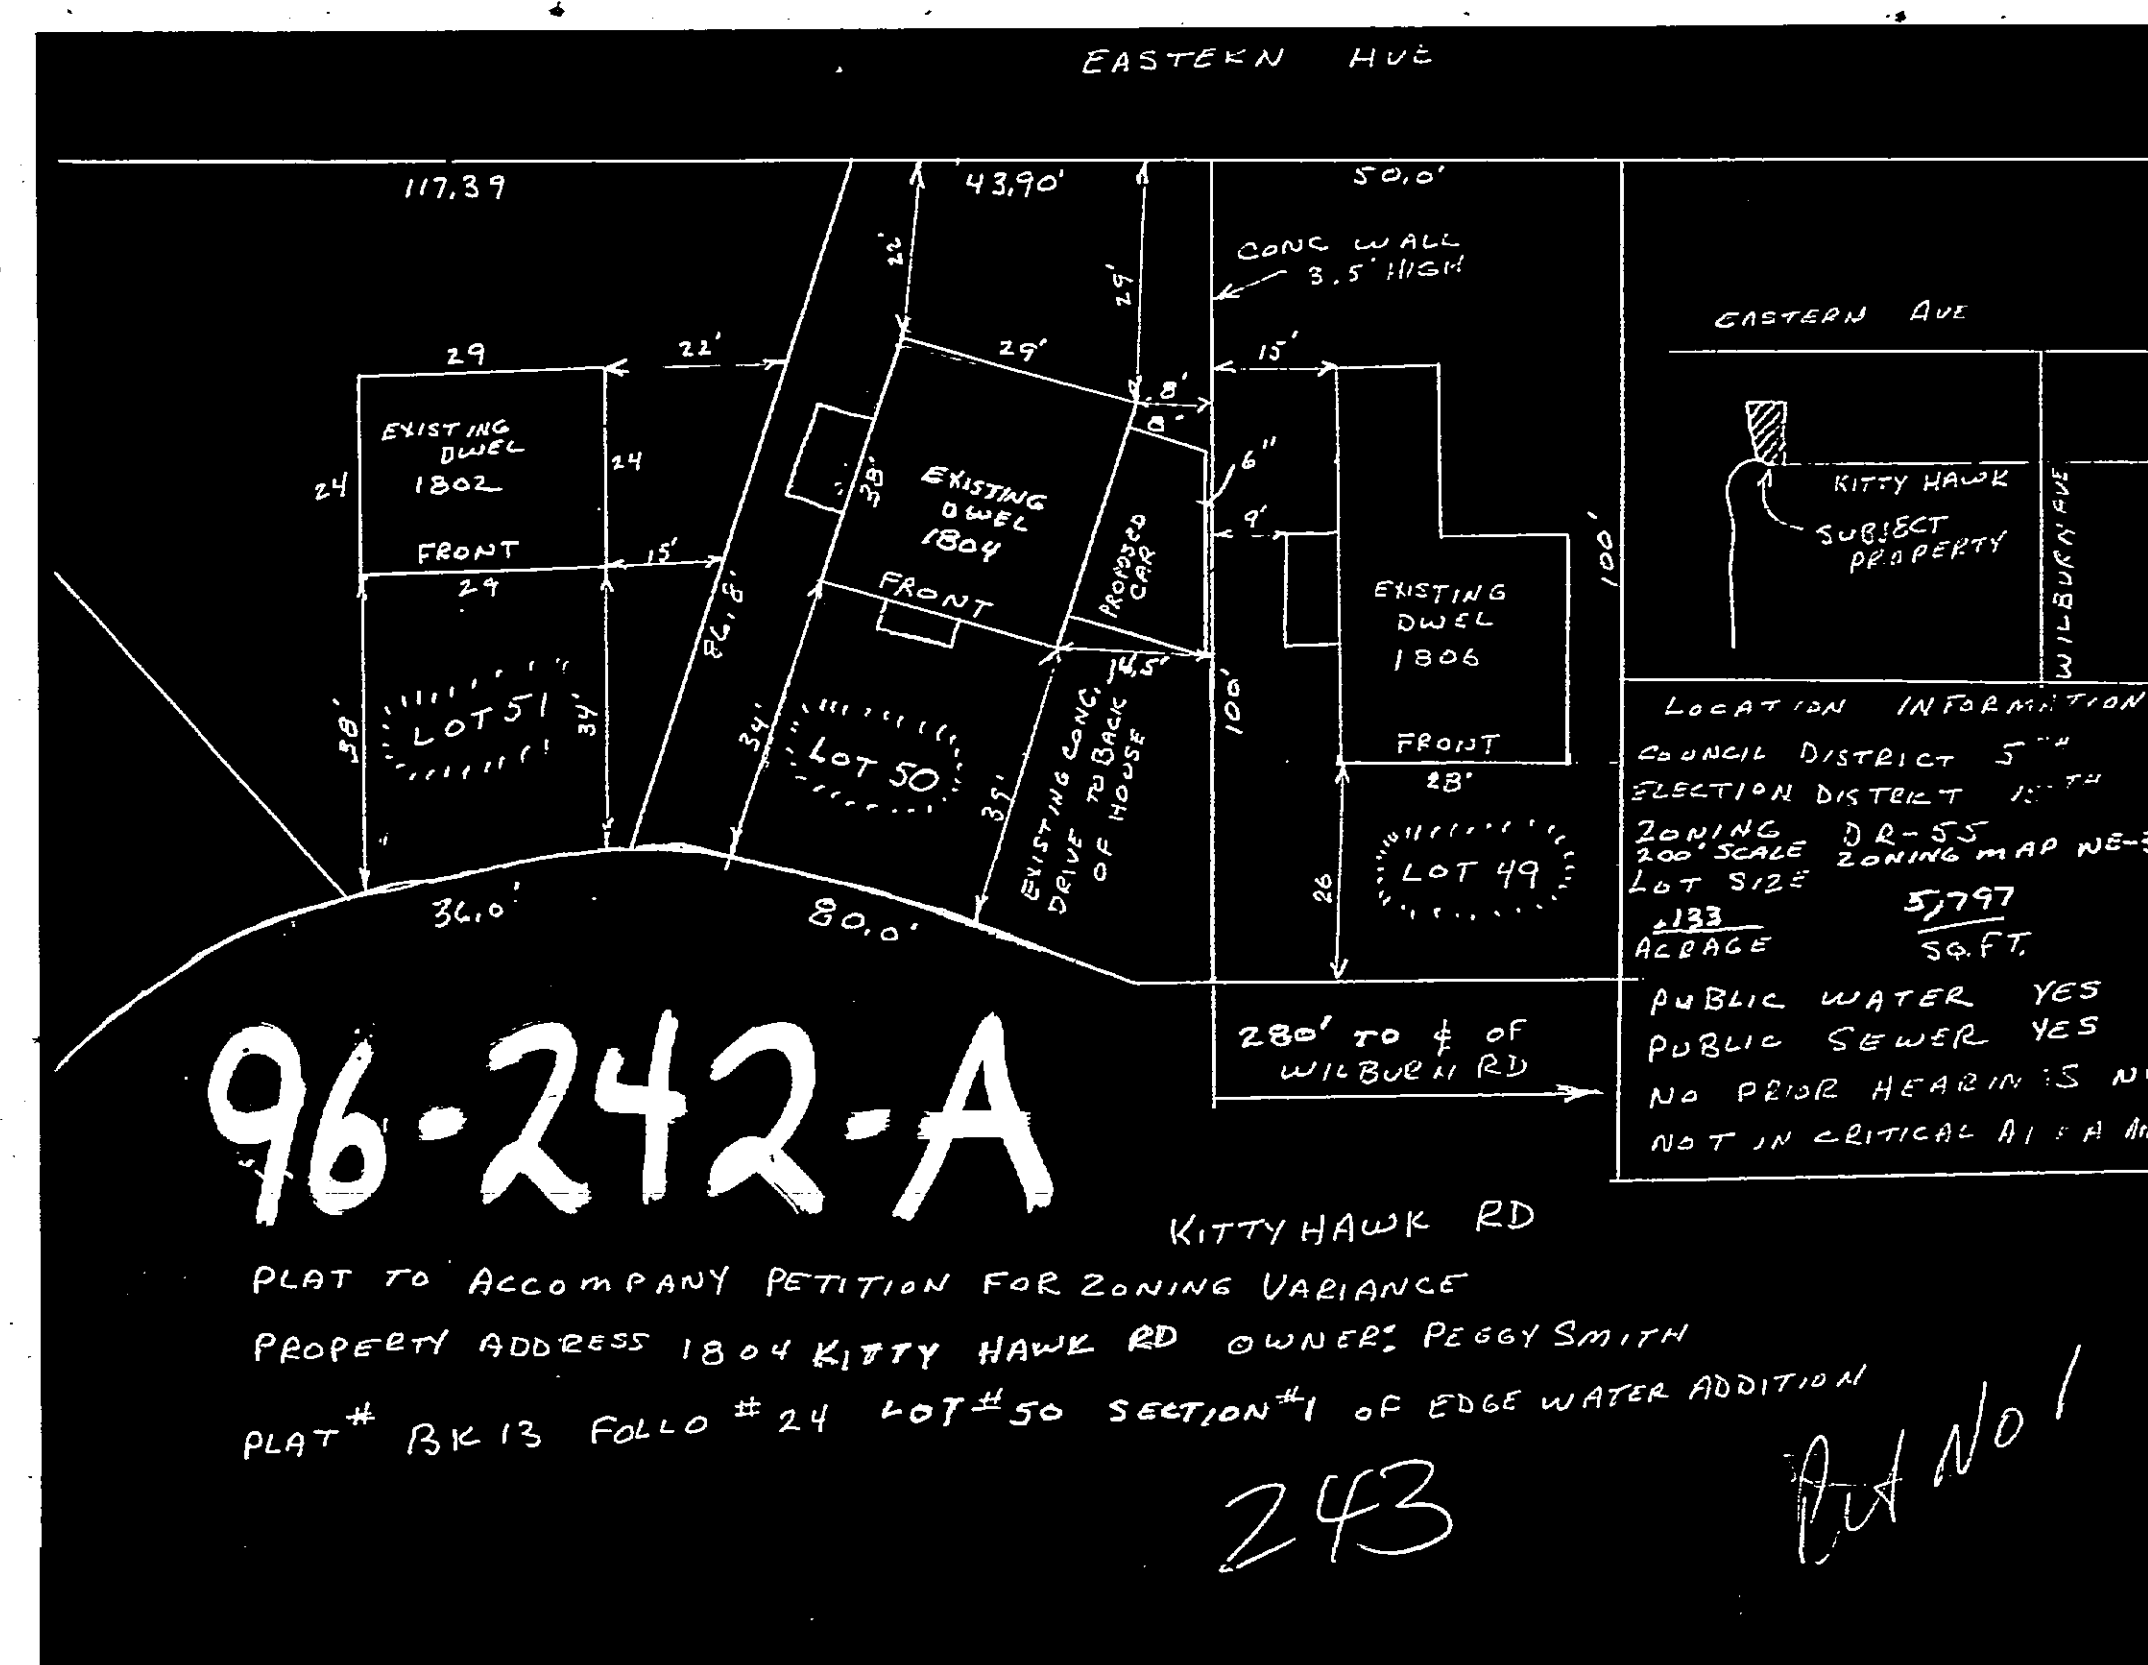 EASTERN AVE
117.39
43.90'
50.0'
22'
29'
CONC WALL
3.5' HIGH
29
22'
29'
8'
8'
15'
6"
9'
EXISTING
DWEL
1802
FRONT
24
24
29
15'
38'
34'
LOT 51
86.8'
38'
EXISTING
DWEL
1804
FRONT
PROPOSED
CAR
14.5'
34'
LOT 50
39'
EXISTING CONC.
DRIVE TO BACK
OF HOUSE
100'
EXISTING
DWEL
1806
FRONT
28'
26
LOT 49
100'
36.0'
80.0'
280' TO ¢ OF
WILBURN RD
EASTERN AVE
KITTY HAWK
SUBJECT
PROPERTY
WILBURN AVE
LOCATION INFORMATION
COUNCIL DISTRICT 5TH
ELECTION DISTRICT 15TH
ZONING DR-55
200' SCALE ZONING MAP NE-
LOT SIZE
.133 5,797
ACRAGE SQ.FT.
PUBLIC WATER YES
PUBLIC SEWER YES
NO PRIOR HEARINGS
NOT IN CRITICAL AREA
96-242-A
KITTY HAWK RD
PLAT TO ACCOMPANY PETITION FOR ZONING VARIANCE
PROPERTY ADDRESS 1804 KITTY HAWK RD OWNER: PEGGY SMITH
PLAT # BK 13 FOLLO # 24 LOT # 50 SECTION #1 OF EDGE WATER ADDITION
243
No 1